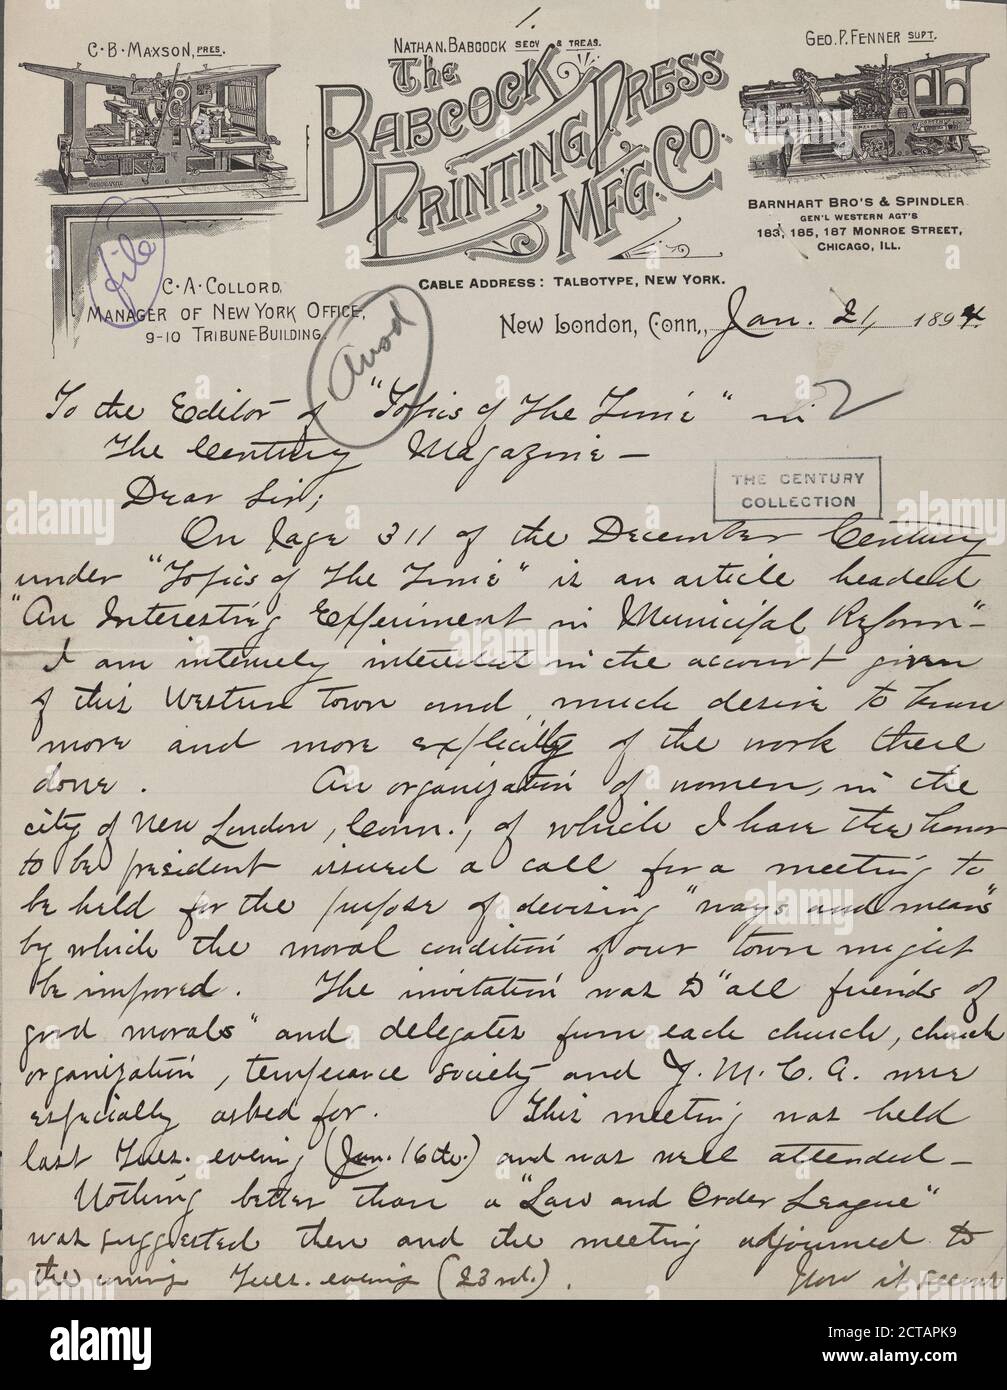 1
C·B·MAXSON, PRES.
NATHAN. BABCOCK SECY & TREAS.
GEO. P. FENNER SUPT.
The
BABCOCK
PRINTING PRESS
MFG. CO.
BARNHART BRO'S & SPINDLER
GEN'L WESTERN AGT'S
183, 185, 187 MONROE STREET,
CHICAGO, ILL.
file
C·A·COLLORD,
MANAGER OF NEW YORK OFFICE,
9-10 TRIBUNE-BUILDING.
CABLE ADDRESS: TALBOTYPE, NEW YORK.
New London, Conn., Jan. 21, 1894
To the Editor of "Topics of The Time" in
The Century Magazine—
THE CENTURY
COLLECTION
Dear Sir;
On page 311 of the December Century
under "Topics of The Time" is an article headed
"An Interesting Experiment in Municipal Reform"—
I am intensely interested in the account given
of this Western town and much desire to know
more and more explicitly of the work there
done. An organization of women, in the
city of New London, Conn., of which I have the honor
to be president issued a call for a meeting to
be held for the purpose of devising "ways and means"
by which the moral condition of our town might
be improved. The invitation was to "all friends of
good morals" and delegates from each church, church
organization, temperance society and Y. M. C. A. were
especially asked for. This meeting was held
last Tues. evening (Jan. 16th.) and was well attended—
Nothing better than a "Law and Order League"
was suggested then and the meeting adjourned to
the coming Tues. evening (23rd.). Now it seems
alamy
Image ID: 2CTAPK9
www.alamy.com